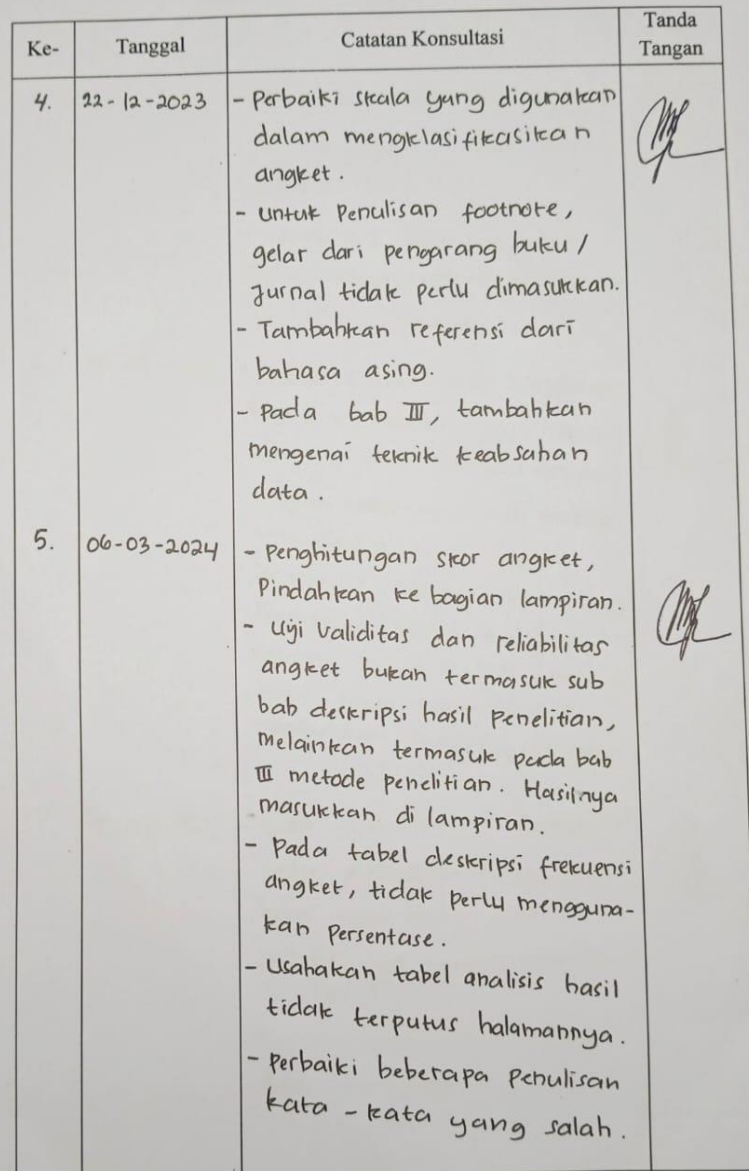 Ke- Tanggal Catatan Konsultasi Tanda Tangan
4. 22-12-2023 - Perbaiki skala yang digunakan
dalam mengklasifikasikan
angket.
- Untuk Penulisan footnote,
gelar dari pengarang buku /
Jurnal tidak perlu dimasukkan.
- Tambahkan referensi dari
bahasa asing.
- Pada bab III, tambahkan
mengenai teknik keabsahan
data.
5. 06-03-2024 - Penghitungan skor angket,
Pindahkan ke bagian lampiran.
- Uji Validitas dan reliabilitas
angket bukan termasuk sub
bab deskripsi hasil Penelitian,
melainkan termasuk pada bab
III metode penelitian. Hasilnya
masukkan di lampiran.
- Pada tabel deskripsi frekuensi
angket, tidak perlu mengguna-
kan Persentase.
- Usahakan tabel analisis hasil
tidak terputus halamannya.
- Perbaiki beberapa Penulisan
kata - kata yang salah.